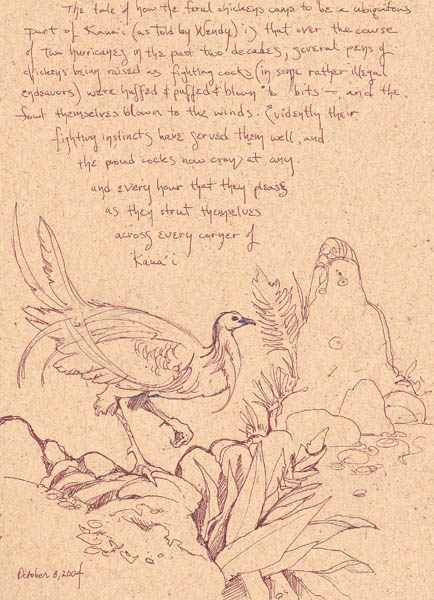 The tale of how the feral chickens came to be a ubiquitous
part of Kaua'i (as told by Wendy) is that over the course
of two hurricanes in the past two decades, several pens of
chickens being raised as fighting cocks (in some rather illegal
endeavors) were huffed & puffed & blown to bits — and the
fowl themselves blown to the winds. Evidently their
fighting instincts have served them well, and
the proud cocks now crow at any
and every hour that they please
as they strut themselves
across every corner of
Kaua'i
October 8, 2004